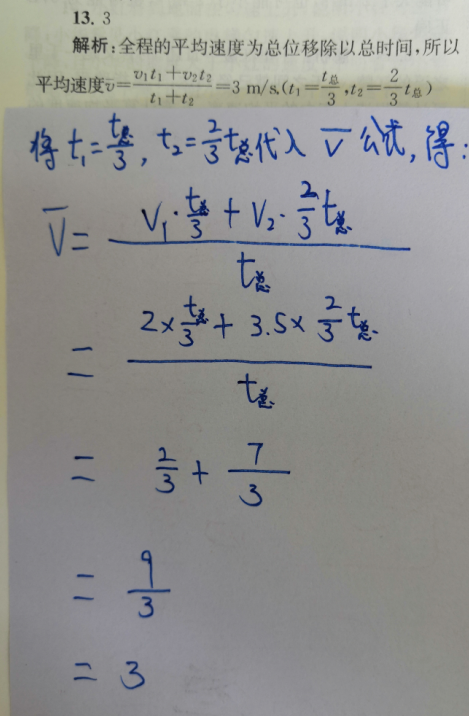 13. 3
解析:全程的平均速度为总位移除以总时间,所以
平均速度v̅=(v₁t₁+v₂t₂)/(t₁+t₂)=3 m/s.(t₁=t总/3,t₂=2/3 t总)
将 t₁=t总/3, t₂=2/3 t总代入 V̅ 公式,得:
V̅= (V₁·t总/3 + V₂·2/3 t总)/t总
= (2×t总/3 + 3.5×2/3 t总)/t总
= 2/3 + 7/3
= 9/3
= 3